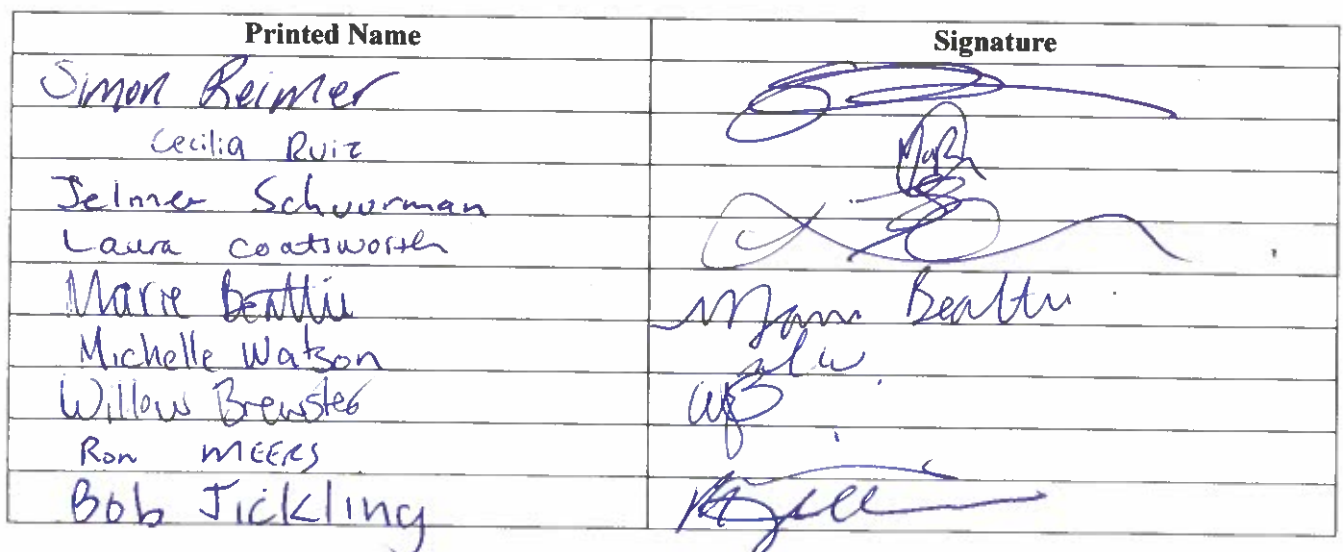 Printed Name Signature
Simon Reimer
Cecilia Ruiz
Jelmer Schuurman
Laura Coatsworth
Marie Beattie Beattie
Michelle Watson
Willow Brewster WB
Ron MEERS
Bob Jickling